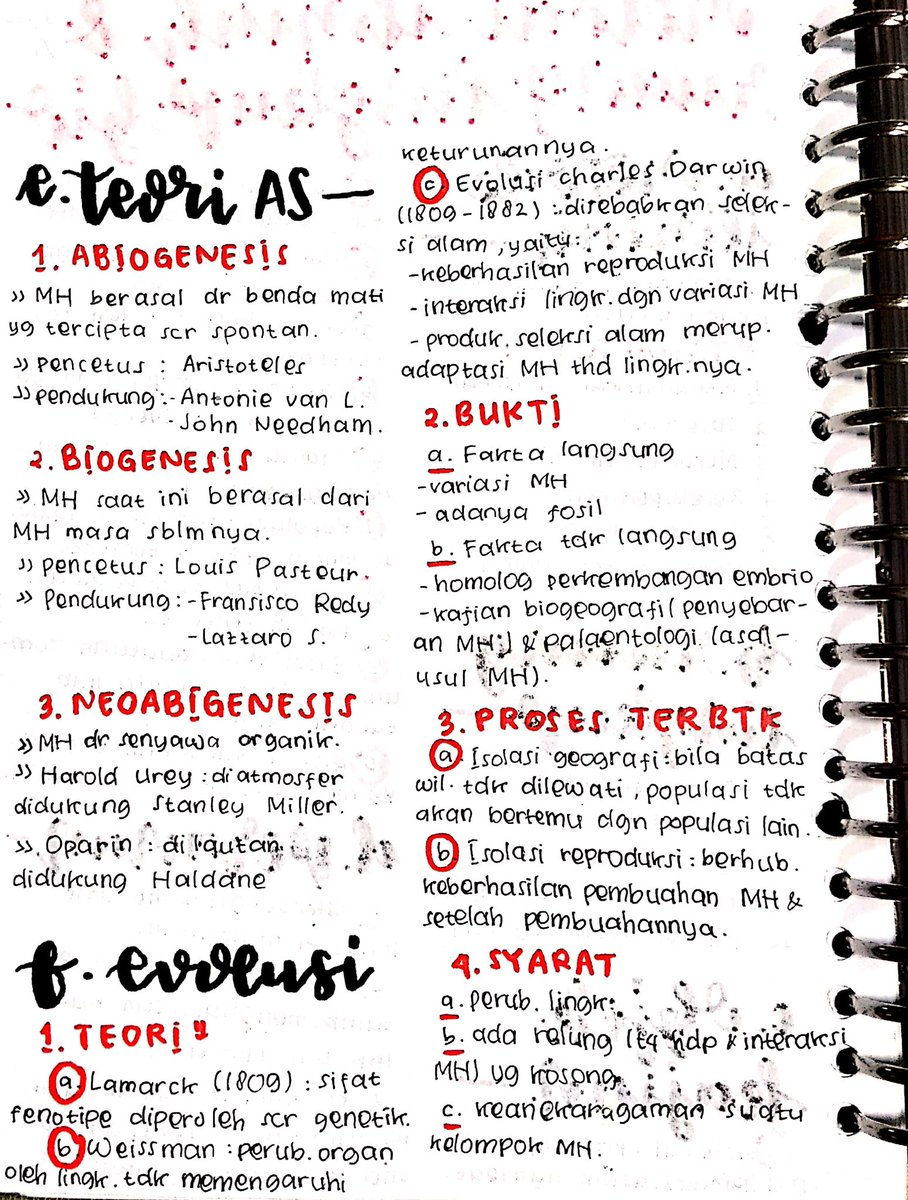 e. teori AS —
1. ABIOGENESIS
» MH berasal dr benda mati
yg tercipta scr spontan.
» pencetus : Aristoteles
» pendukung :- Antonie van L.
- John Needham.
2. BIOGENESIS
» MH saat ini berasal dari
MH masa sblmnya.
» pencetus : Louis Pasteur.
» Pendukung : - Fransisco Redy
- Lazzaro S.
3. NEOABIGENESIS
» MH dr senyawa organik.
» Harold Urey : di atmosfer
didukung Stanley Miller.
» Oparin : di lautan
didukung Haldane
f. evolusi
1. TEORI"
a. Lamarck (1809) : sifat
fenotipe diperoleh scr genetik.
b. Weissman : perub. organ
oleh lingk. tdk memengaruhi
keturunannya.
c. Evolusi charles Darwin
(1809-1882) : disebabkan selek-
si alam, yaitu:
- keberhasilan reproduksi MH
- interaksi lingk. dgn variasi MH
- produk seleksi alam merup.
adaptasi MH thd lingk.nya.
2. BUKTI
a. Fakta langsung
- variasi MH
- adanya fosil
b. Fakta tdk langsung
- homolog perkembangan embrio
- kajian biogeografi (penyebar-
an MH) & palaentologi (asal-
usul MH).
3. PROSES TERBTK
a. Isolasi geografi : bila batas
wil. tdk dilewati, populasi tdk
akan bertemu dgn populasi lain.
b. Isolasi reproduksi : berhub.
keberhasilan pembuahan MH &
setelah pembuahannya.
4. SYARAT
a. perub. lingk.
b. ada relung (tq hdp & interaksi
MH) yg kosong
c. keanekaragaman suatu
kelompok MH.